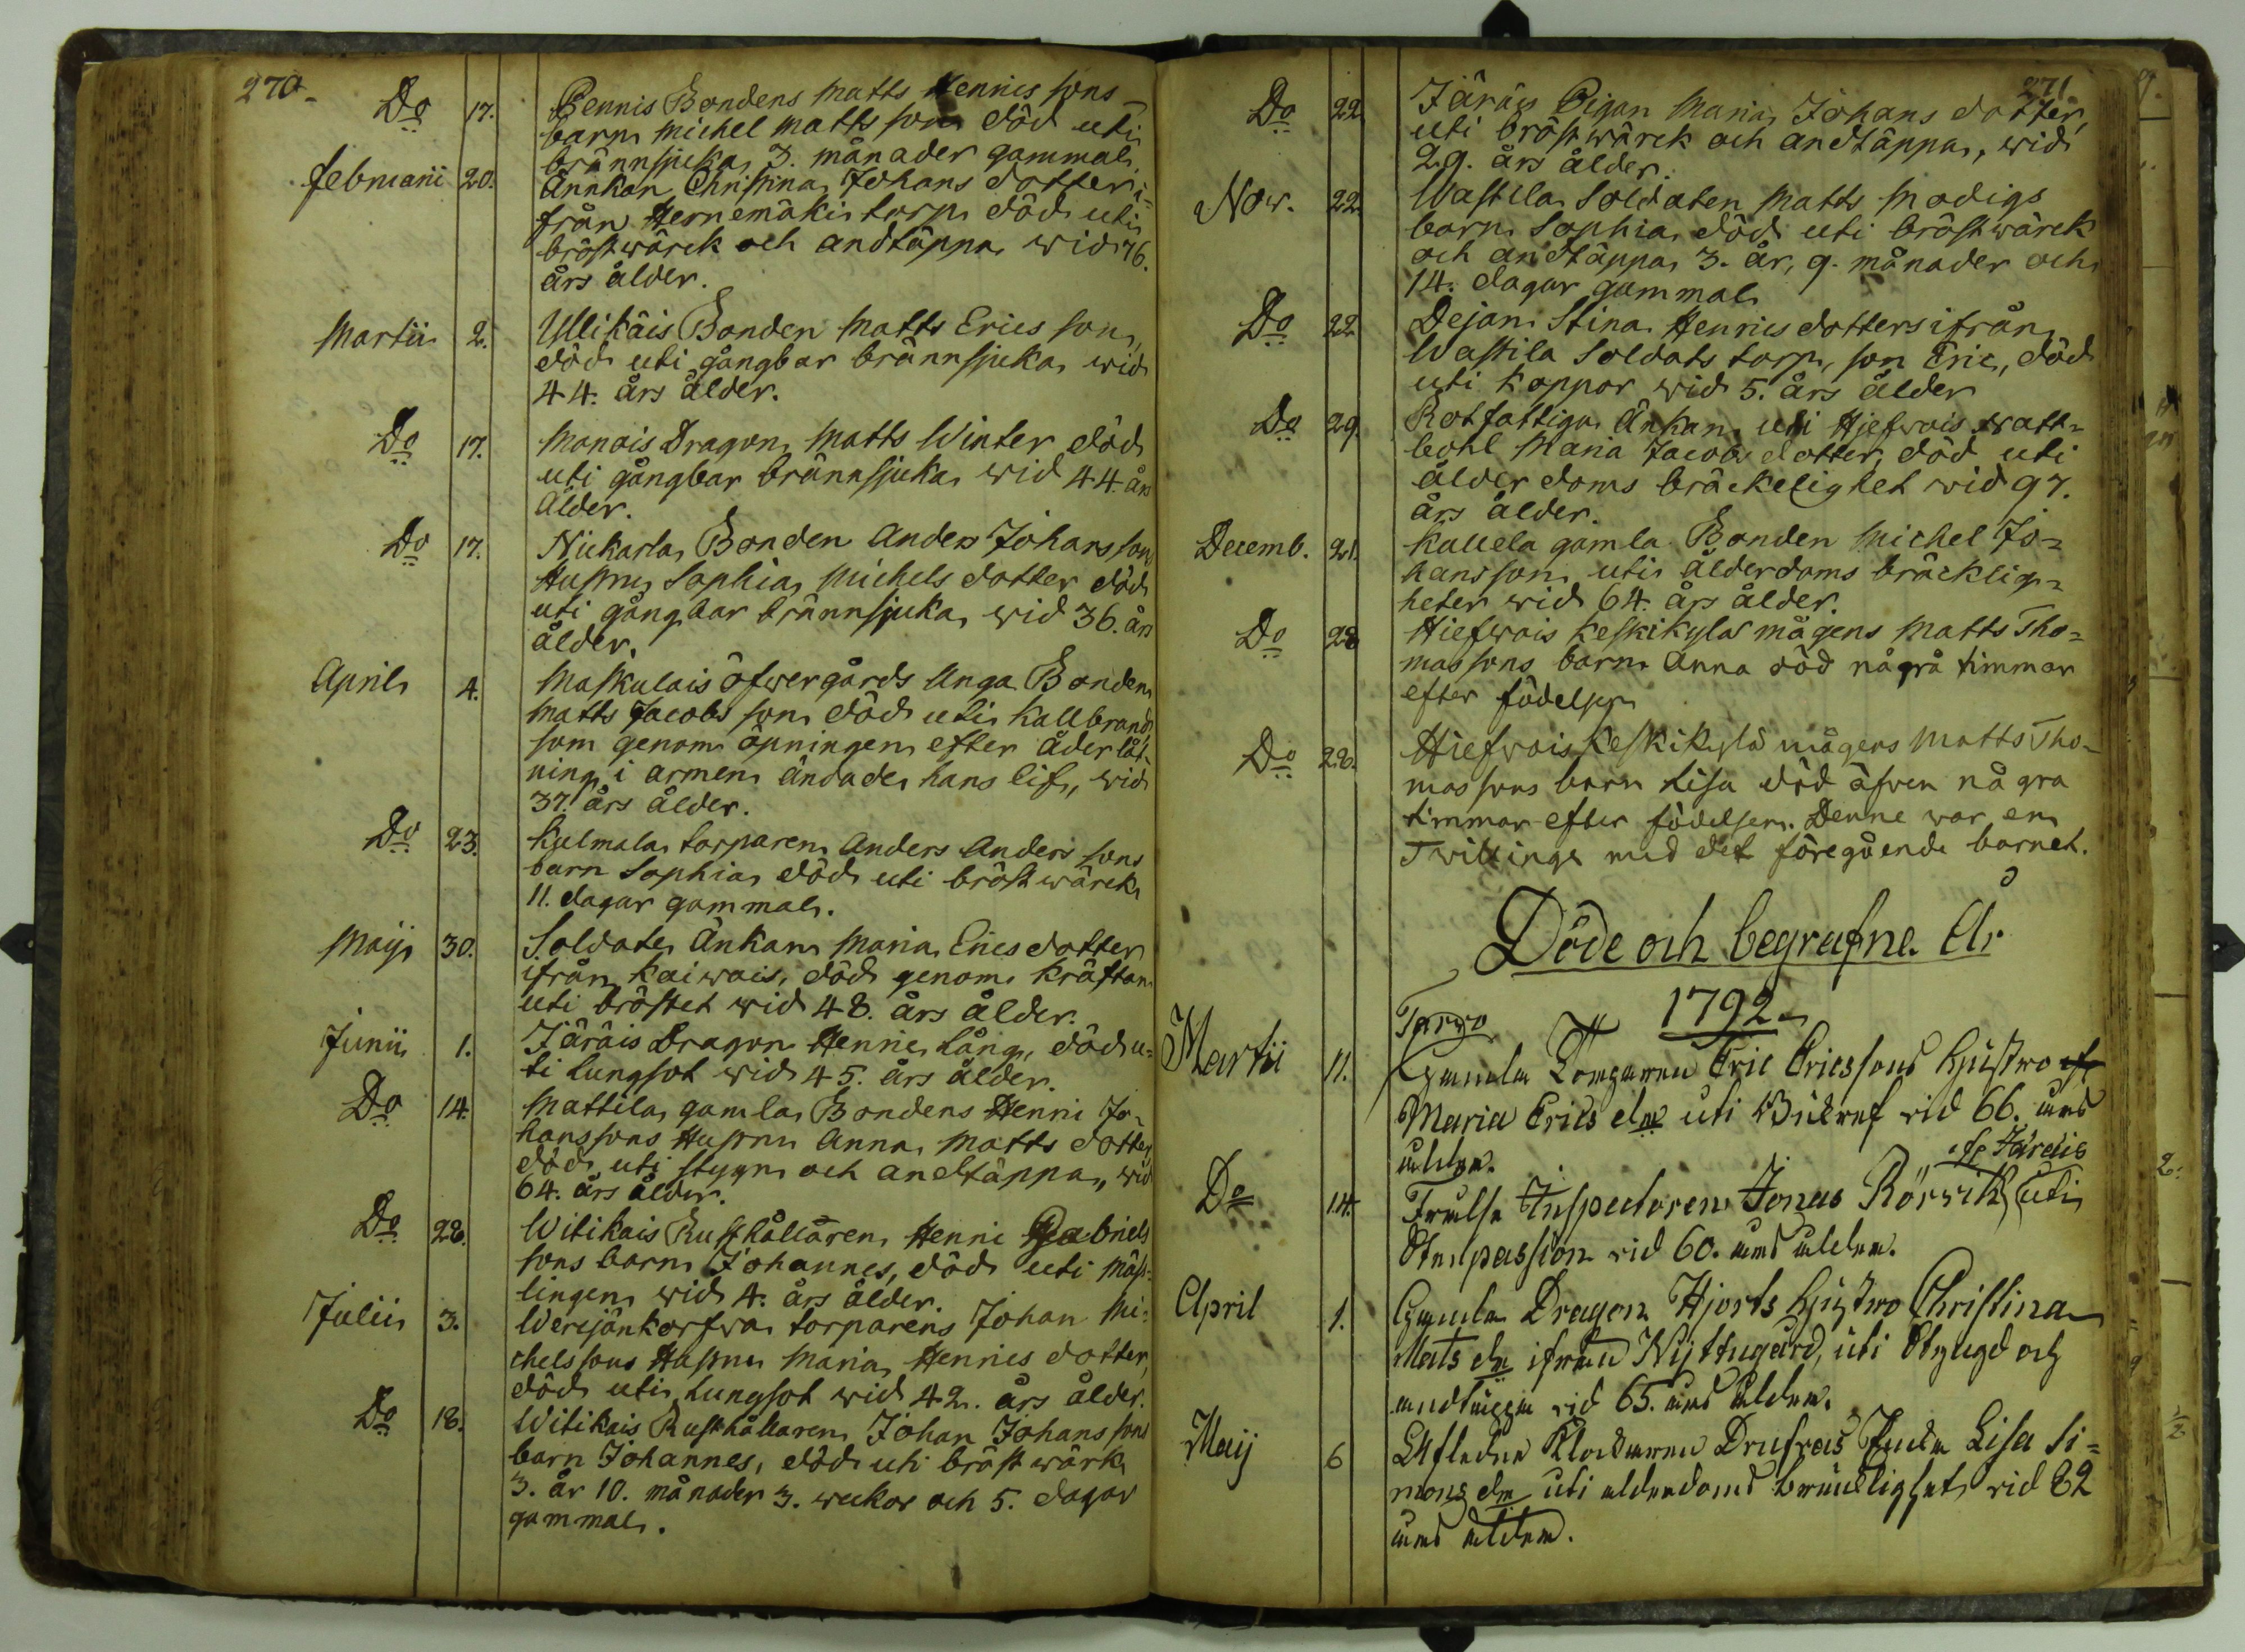 270
Do 17. Pennis Bondens Matts Hennics sons
barn Michel Matts son död uti
brännsjuka, 3. månader gammal.
Februarii 20. Ännkan Christina Johans dotter i-
från Hernemäki torp död uti
bröstwärck och andtäppa wid 76.
års ålder.
Martii 2. Ylikäis Bonden Matts Erics son,
död uti gångbar brännsjuka, wid
44. års ålder.
Do 17. Monois Dragon Matts Winter död
uti gångbar brännsjuka wid 44. års
Ålder.
Do 17. Nickarla Bonden Anders Johans sons
Hustru Sophia Michels dotter död
uti gångbar brännsjuka, wid 36. års
ålder.
April 4. Maskulais öfwergårds Unga Bonden
Matts Jacobs son död uti Kallbrand,
som genom öpningen efter åderlåt-
ning i armen ändade hans lif, wid
37. års ålder.
Do 23. Kulmala torparen Anders Anders sons
barn Sophia död uti bröstwärck
11. dagar gammal.
Maij 30. Soldats Änkan Maria Erics dotter
ifrån Kaiwais, död genom kräftan
uti bröstet wid 48. års ålder.
Junii 1. Järäis Dragon Hennic Lång, död u-
ti lungsot wid 45. års ålder.
Do 14. Mattila gamla Bondens Henric Jo-
hanssons Hustru Anna Matts dotter
död uti stygn och andtäppa, wid
64. års ålder.
Do 28. Witikais Rusthållaren Henric Gabriels
sons barn Johannes, död uti Mäss-
lingen wid 4. års ålder.
Julii 3. Werijänkorfwa torparens Johan Mi-
chelssons Hustru Maria Hennics dotter,
död uti Lungsot wid 42. års ålder.
Do 18. Witikais Rusthållaren Johan Johans sons
barn Johannes, död uti bröstwärk
3. år 10. månader 3. weckor och 5. dagar
gammal.
271
Do 22. Järäis Pigan Maria Johans dotter,
uti bröstwärck och andtäppa, wid
29. års ålder.
Nov. 22. Wastila Soldaten Matts Modigs
barn Sophia död uti bröstwärck
och andtäppa 3. år, 9. månader och
14. dagar gammal
Do 22. Dejan Stina Henrics dotters ifrån
Wastila Soldats torp, son Eric, död
uti koppor wid 5. års ålder
Do 29. Rotfattiga Änkan uti Hiefwais watt-
bohl Maria Jacobs dotter, död uti
ålderdoms bräckelighet wid 97.
års ålder.
Decemb. 21. Kallela gamla Bonden Michel Jo-
hansson uti ålderdoms bräcklig-
heter wid 64. års ålder.
Do 28. Hiefwais Keskikylä mågens Matts Tho-
massons barn Anna död några timmar
efter födelsen
Do 28. Hiefwais Keskikylä mågens Matts Tho-
massons barn Lisa död äfwen några
timmar efter födelsen. Denne war en
Twilling med det föregående barnet.
Döde och begrafne År
1792.
Martii 11. Gamla Torparen Eric Ericssons hustro
Maria Erics dr uti wid 66. års
ålder.
if. Järäis
Do 14. Frälse Inspectoren Jonas Rörwik uti
Stenpassion wid 60. års ålder.
April 1. Gamla Dragon Hjorts hustro Christina
Mats dr ifrån Nyttugård, uti Stygn och
andtäppa wid 65. års ålder.
Maij 6 Afledne Klockaren Drufvas Enka Lisa Si-
mons dr uti ålderdoms bräcklighet wid 82
års ålder.